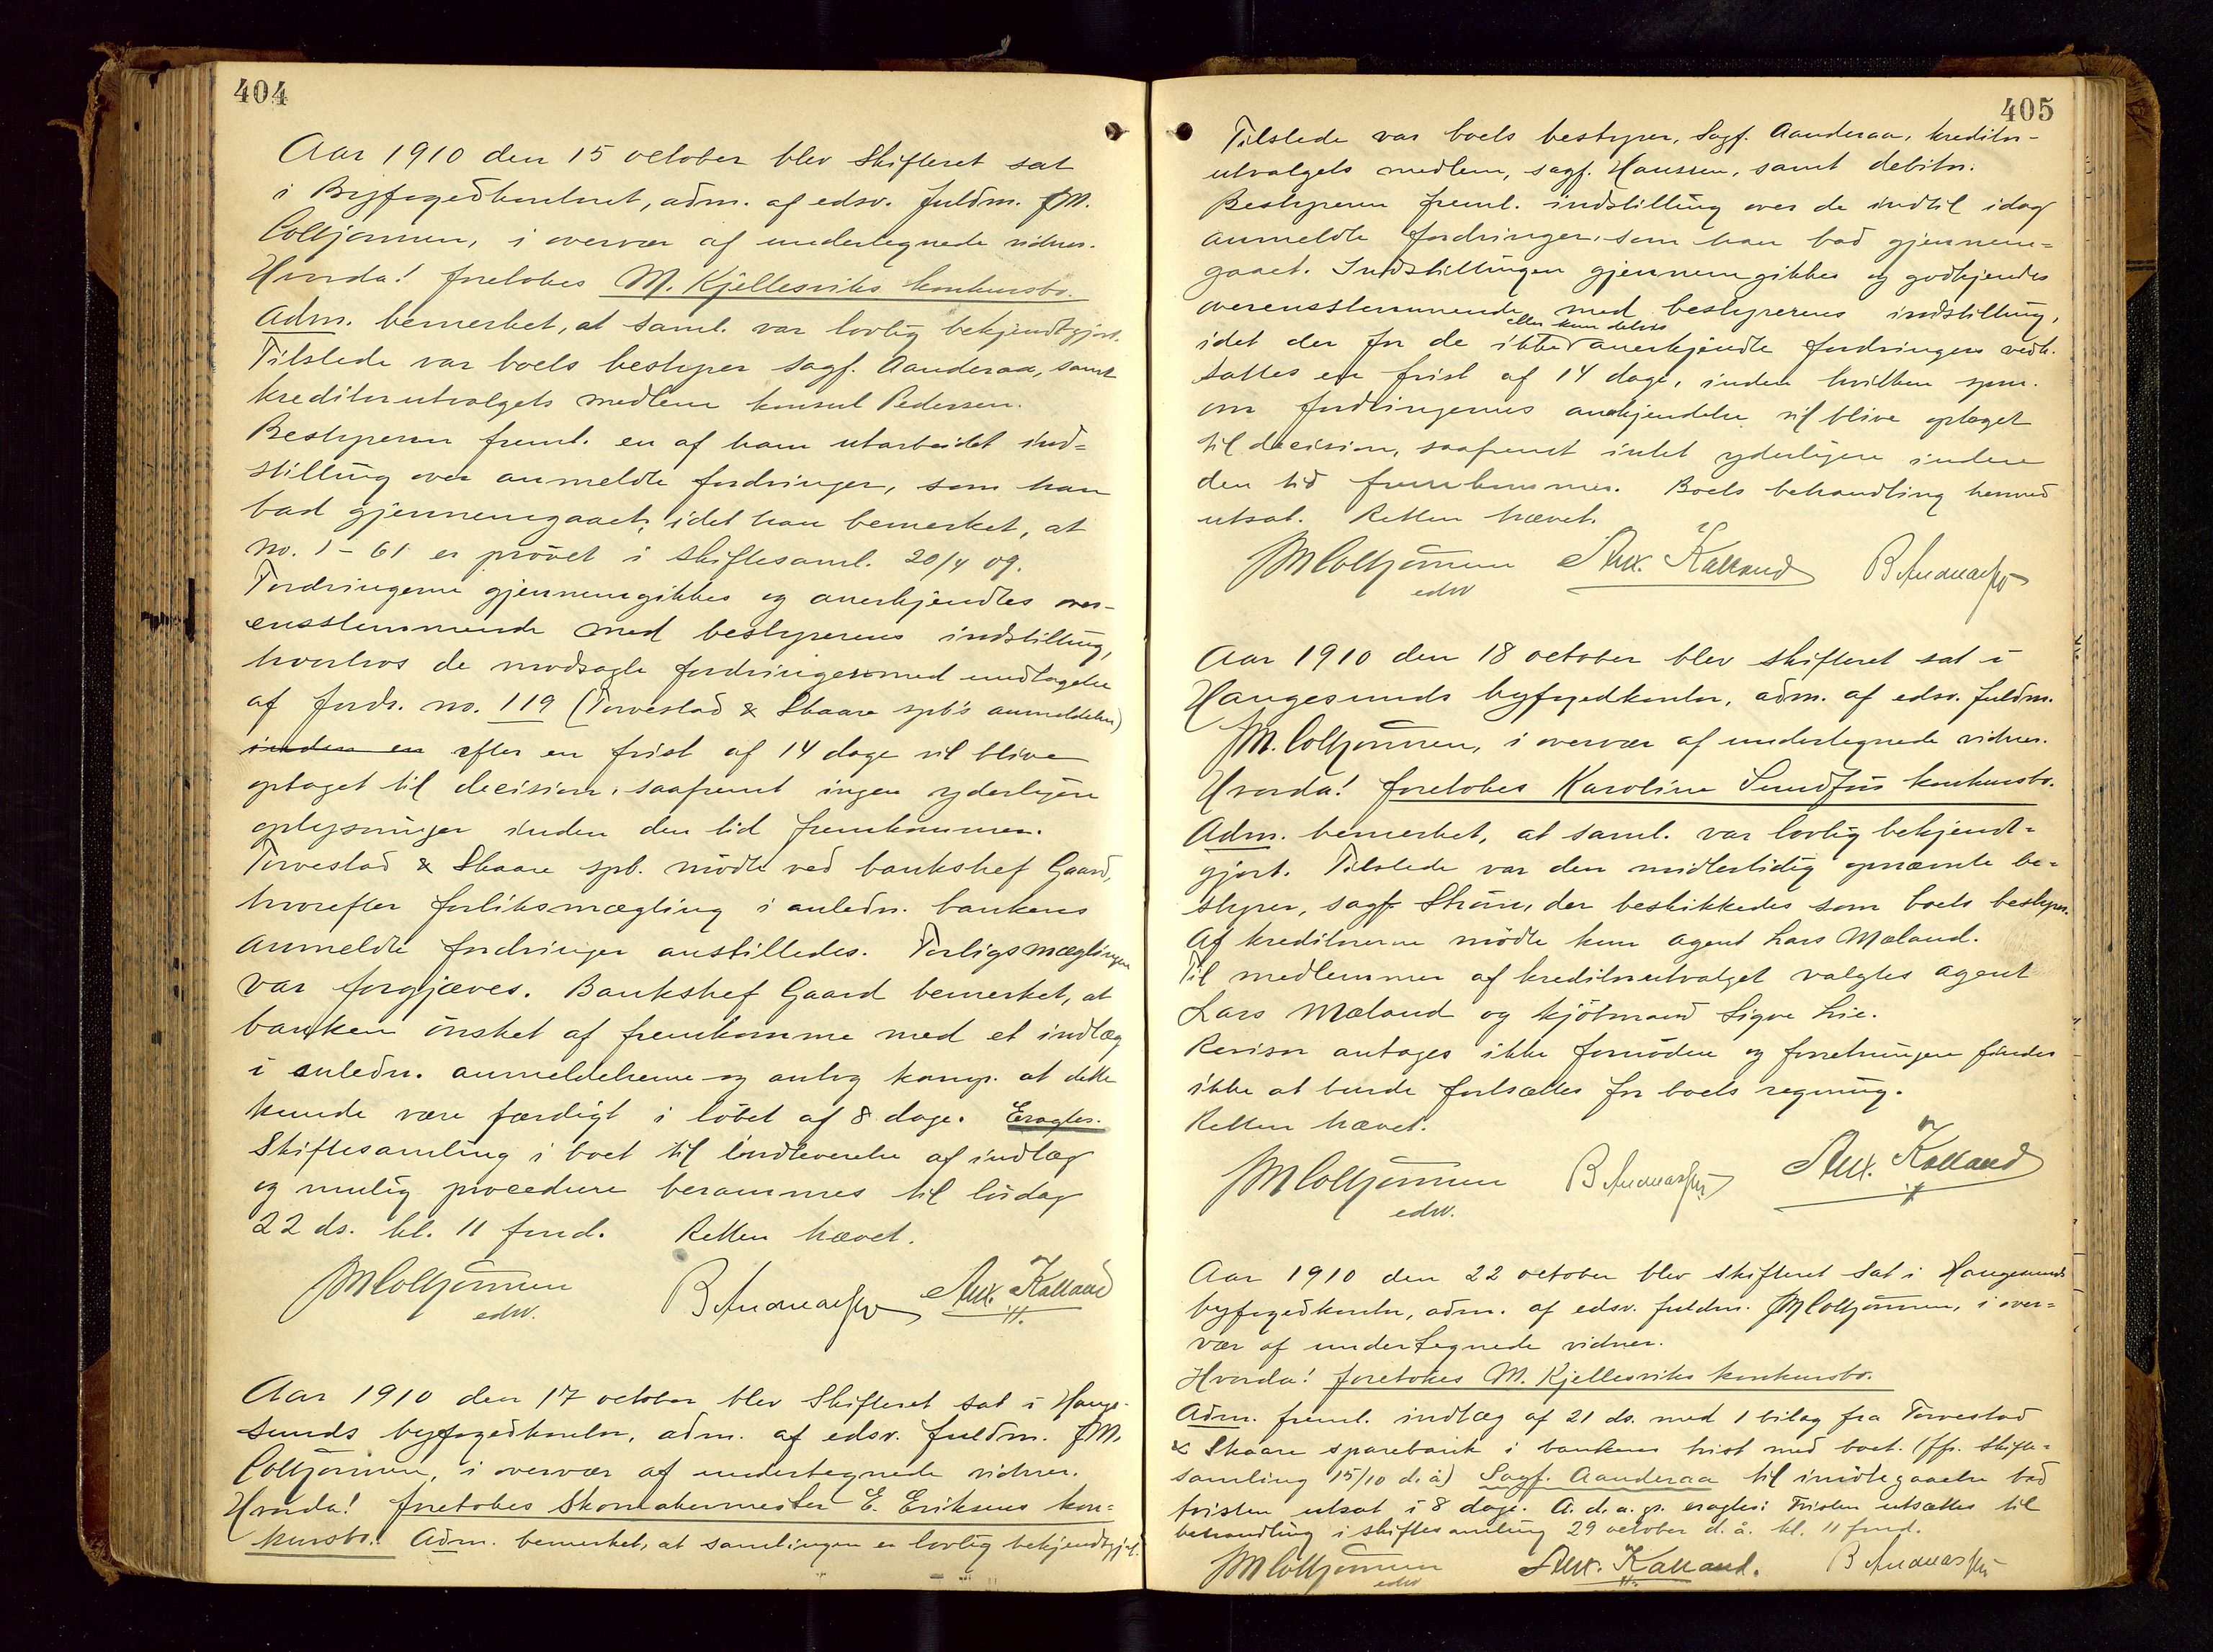 404
Aar 1910 den 15 october blev Skifteret sat
i Byfogedkontoret, adm. af edsv. fuldm. JM.
Colbjørnsen, i overvær af undertegnede vidner.
Hvorda! foretokes M. Kjellesviks konkursbo.
Adm. bemerket, at saml. var lovlig bekjendtgjort.
Tilstede var boets bestyrer sagf. Aanderaa, samt
kreditorutvalgets medlem konsul Pedersen.
Bestyreren freml. en af ham utarbeidet ind-
stilling over anmeldte fordringer, som han
bad gjennemgaaet, idet han bemerket, at
no. 1 - 61 er prövet i skiftesaml. 20/4 09.
Fordringerne gjennemgikkes og anerkjendtes over-
ensstemmende med bestyrerens indstilling,
hvorhos de modsagte fordringer med undtagelse
af fordr. no. 119 (Torvestad & Skaare spb's anmeldelse)
inden en efter en frist af 14 dage vil blive
optaget til decision, saafremt ingen yderligere
oplysninger inden den tid fremkommer.
Torvestad & Skaare spb. mödte ved bankchef Gaard,
hvorefter forliksmægling i anledn. bankens
anmeldte fordringer anstilledes. Forligsmæglingen
var forgjæves. Bankchef Gaard bemerket, at
banken önsket at fremkomme med et indlæg
i anledn. anmeldelserne og antog komp. at dette
kunde være færdigt i löbet af 8 dage. Eragtes.
Skiftesamling i boet til indleverelse af indlæg
og mulig procedure berammes til lördag
22 ds. kl. 11 formd. Retten hævet.
JM Colbjørnsen B Andreassen Alex. Kalland
edsv.
Aar 1910 den 17 october blev Skifteret sat i Hauge-
sunds byfogedkontor, adm. af edsv. fuldm. JM.
Colbjørnsen, i overvær af undertegnede vidner.
Hvorda! foretokes Skomakermester E. Eriksens kon-
kursbo. Adm. bemerket, at samlingen er lovlig bekjendtgjort.
405
Tilstede var boets bestyrer, Sagf. Aanderaa, kreditor-
utvalgets medlem, sagf. Hanssen, samt debitor.
Bestyreren freml. indstilling over de indtil idag
anmeldte fordringer, som han bad gjennem-
gaaet. Indstillingen gjennemgikkes og godkjendes
overensstemmende med bestyrerens indstilling,
eller kun delvis
idet der for de ikke anerkjendte fordringers vedk.
sattes en frist af 14 dage, inden hvilken spm.
om fordringernes anerkjendelse vil blive optaget
til decision, saafremt intet yderligere inden
den tid fremkommer. Boets behandling hermed
utsat. Retten hævet.
JM Colbjørnsen Alex. Kalland B Andreassen
edsv
Aar 1910 den 18 october blev skifteret sat i
Haugesunds byfogedkontor, adm. af edsv. fuldm.
JM. Colbjørnsen, i overvær af undertegnede vidner.
Hvorda! foretokes Karoline Sundförs konkursbo.
Adm. bemerket, at saml. var lovlig bekjendt-
gjort. Tilstede var den midlertidig opnævnte be-
styrer, sagf. Ström, der beskikkedes som boets bestyrer.
Af kreditorerne mödte kun agent Lars Mæland.
Til medlemmer af kreditorutvalget valgtes agent
Lars Mæland og kjöbmand Sigve Lie.
Revisor antages ikke fornöden og forretningen findes
ikke at burde fortsættes for boets regning.
Retten hævet.
JM Colbjørnsen B Andreassen Alex. Kalland
edsv.
Aar 1910 den 22 october blev skifteret sat i Haugesunds
byfogedkontor, adm. af edsv. fuldm. JM Colbjørnsen, i over-
vær af undertegnede vidner.
Hvorda! foretokes M. Kjellesviks konkursbo.
Adm. freml. indlæg af 21 ds. med 1 bilag fra Torvestad
& Skaare sparebank i bankens tvist med boet. (ffr. skifte-
samling 15/10 d.å) Sagf. Aanderaa til imötegaaelse bad
tvisten utsat i 8 dage. A.d.a.p. eragtes: Tvisten utsættes til
behandling i skiftesamling 29 october d.å. kl. 11 formd.
JM Colbjørnsen Alex. Kalland. B Andreassen
edsv